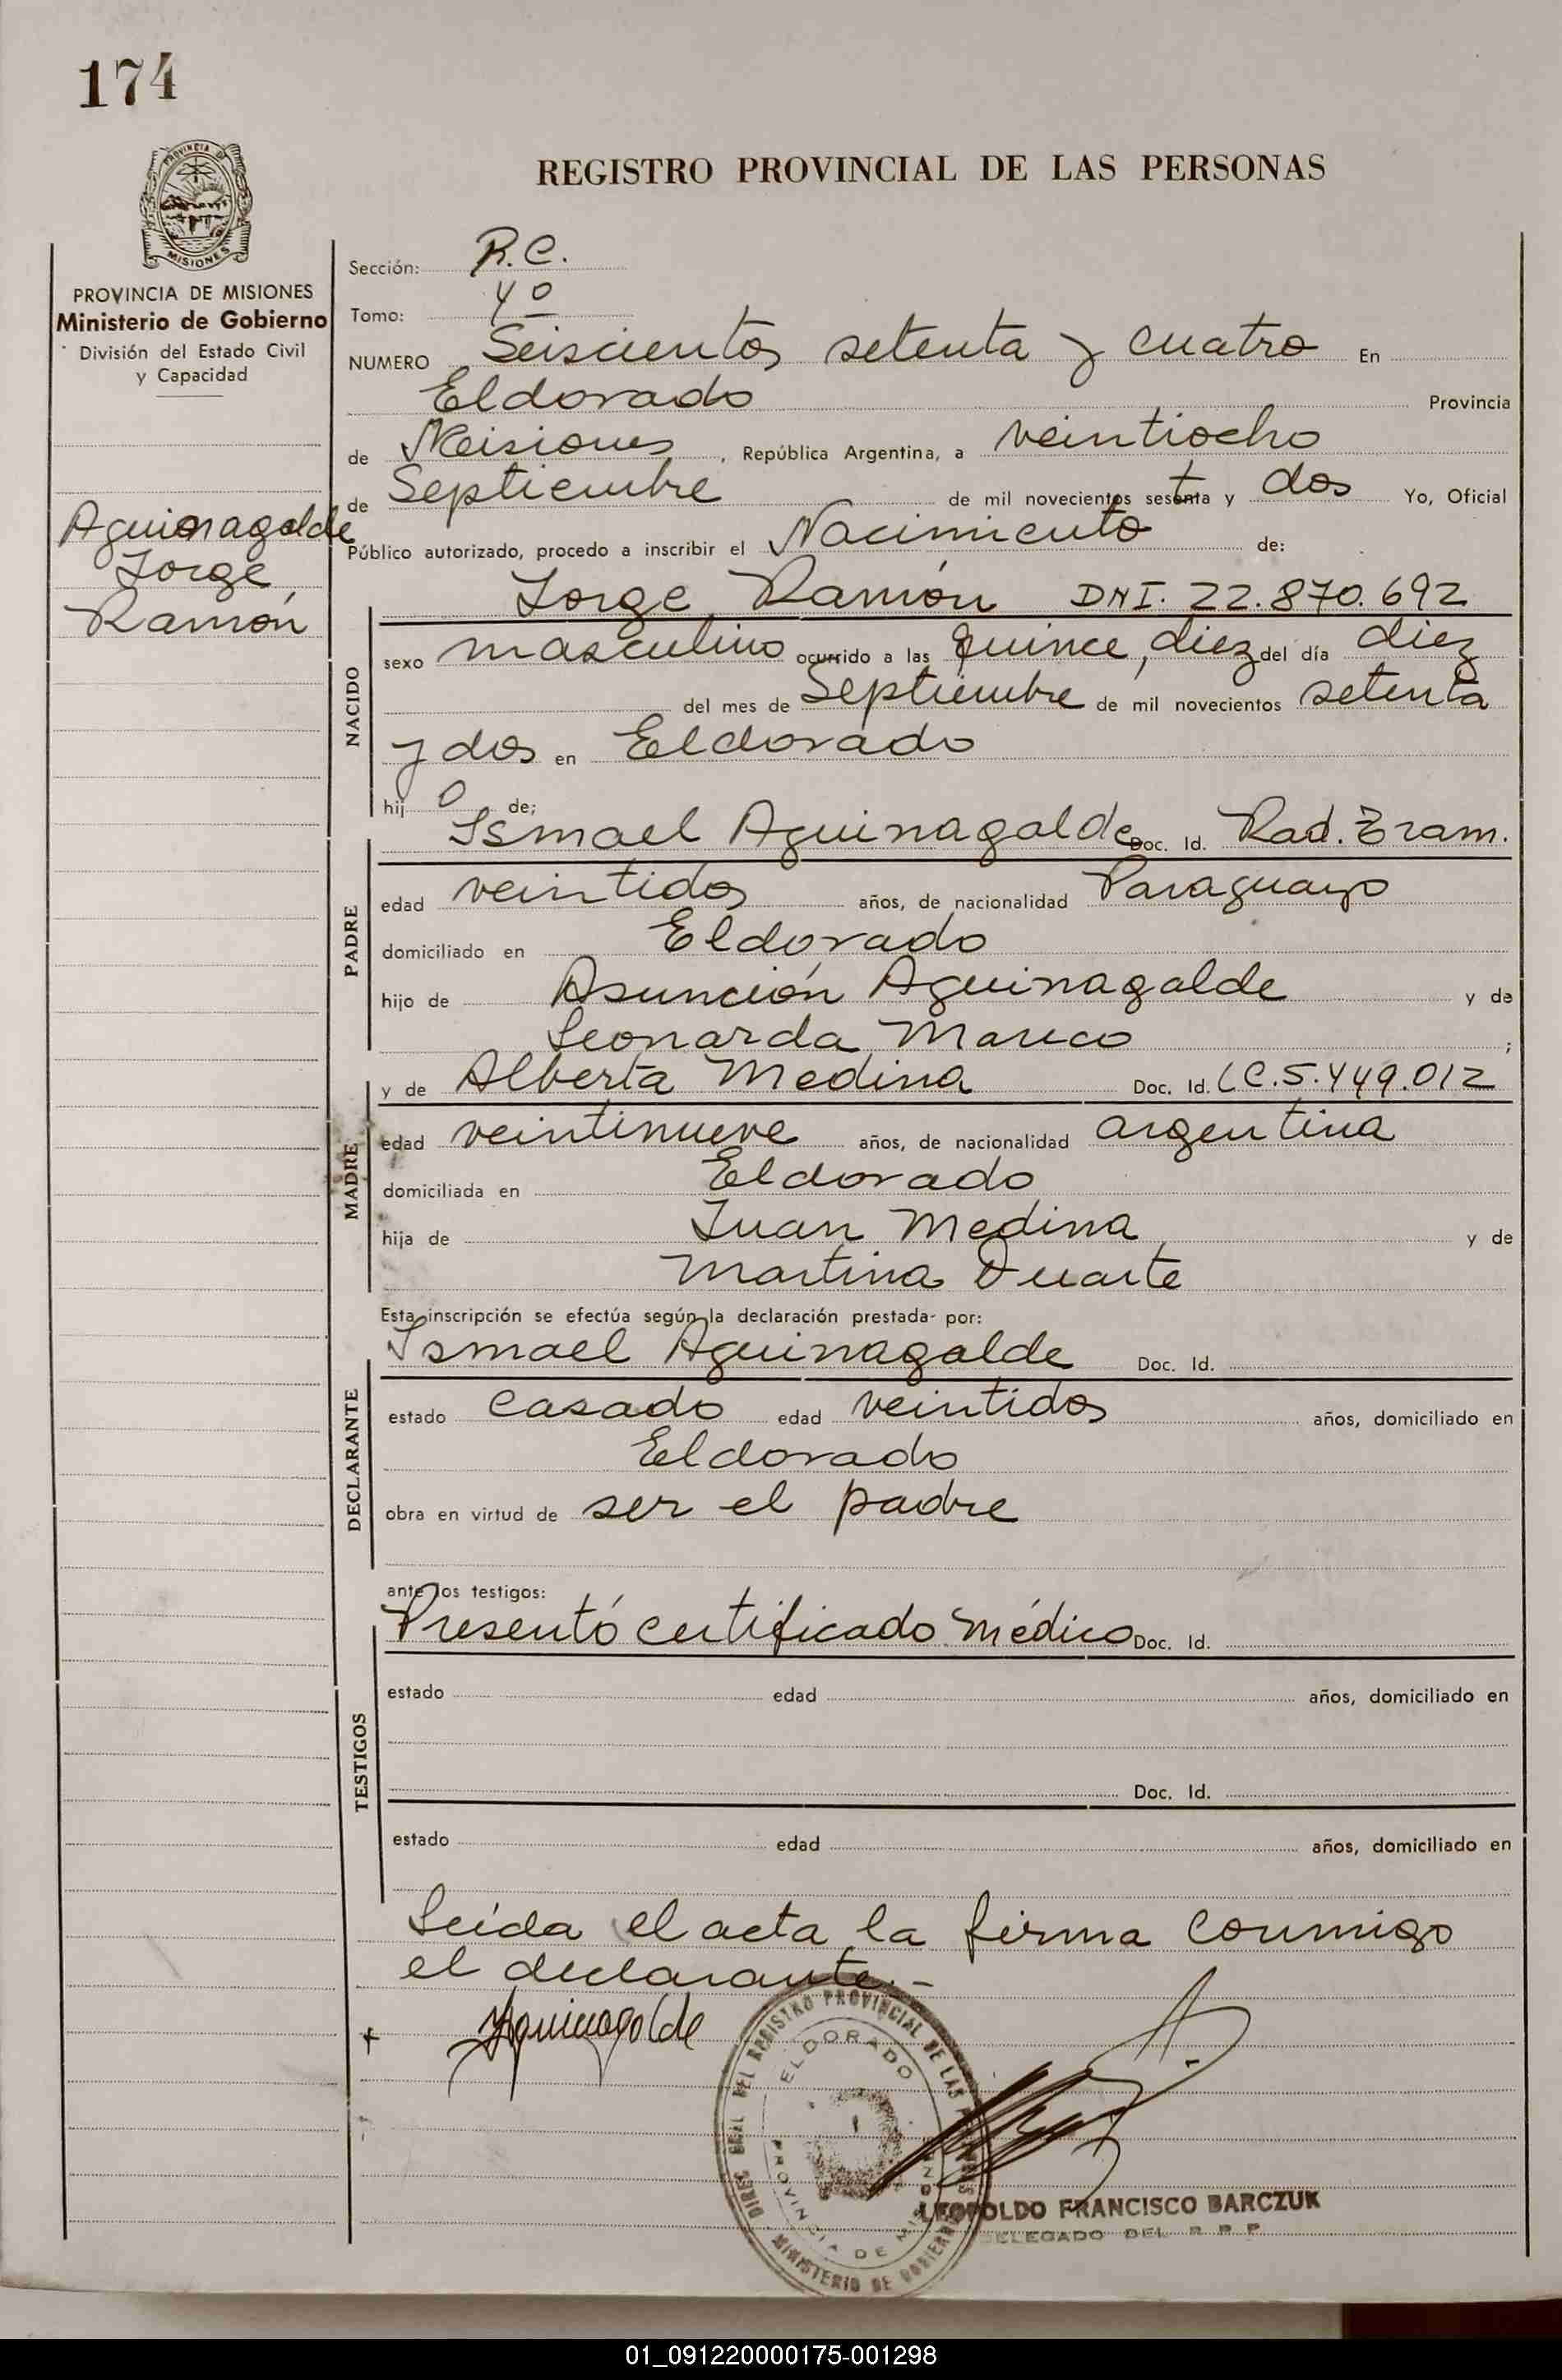 174
PROVINCIA DE
MISIONES
REGISTRO PROVINCIAL DE LAS PERSONAS
PROVINCIA DE MISIONES
Ministerio de Gobierno
División del Estado Civil
y Capacidad
Aguinagalde
Jorge
Ramón
Sección: R.C.
Tomo: 4º
NUMERO Seiscientos setenta y cuatro En
Eldorado Provincia
de Misiones, República Argentina, a veintiocho
de Septiembre de mil novecientos setenta y dos Yo, Oficial
Público autorizado, procedo a inscribir el Nacimiento de:
Jorge Ramón DNI. 22.870.692
NACIDO
sexo masculino ocurrido a las quince, diez del día diez
del mes de Septiembre de mil novecientos setenta
y dos en Eldorado
hijo de;
Ismael Aguinagalde Doc. Id. Rad. Tram.
PADRE
edad veintidos años, de nacionalidad Paraguayo
domiciliado en Eldorado
hijo de Asunción Aguinagalde y de
Leonarda Mareco ;
y de Alberta Medina Doc. Id. LC.5.449.012
MADRE
edad veintinueve años, de nacionalidad argentina
domiciliada en Eldorado
hija de Juan Medina y de
Martina Duarte
Esta inscripción se efectúa según la declaración prestada por:
Ismael Aguinagalde Doc. Id.
DECLARANTE
estado casado edad veintidos años, domiciliado en
Eldorado
obra en virtud de ser el padre
ante los testigos:
Presentó certificado médico Doc. Id.
TESTIGOS
estado edad años, domiciliado en
Doc. Id.
estado edad años, domiciliado en
Leída el acta la firma conmigo
el declarante.-
Aguinagalde
DIREC. GRAL. DEL REGISTRO PROVINCIAL DE LAS PERSONAS
ELDORADO
PROVINCIA DE MISIONES
MINISTERIO DE GOBIERNO
LEOPOLDO FRANCISCO BARCZUK
DELEGADO DEL R. P. P.
01_091220000175-001298